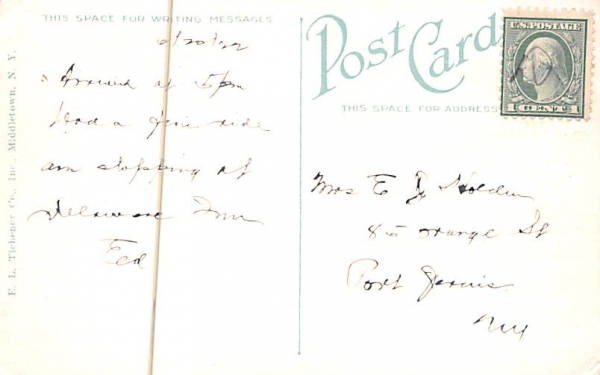 THIS SPACE FOR WRITING MESSAGES
6/20/22
Arrived at 5 pm
Had a fine ride
am stopping at
Delaware Inn
Ted
E. L. Tichener Co., Inc., Middletown, N. Y.
Post Card
THIS SPACE FOR ADDRESS
U.S. POSTAGE
1 CENT 1
Mrs E J Holden
85 Orange St
Port Jervis
NY